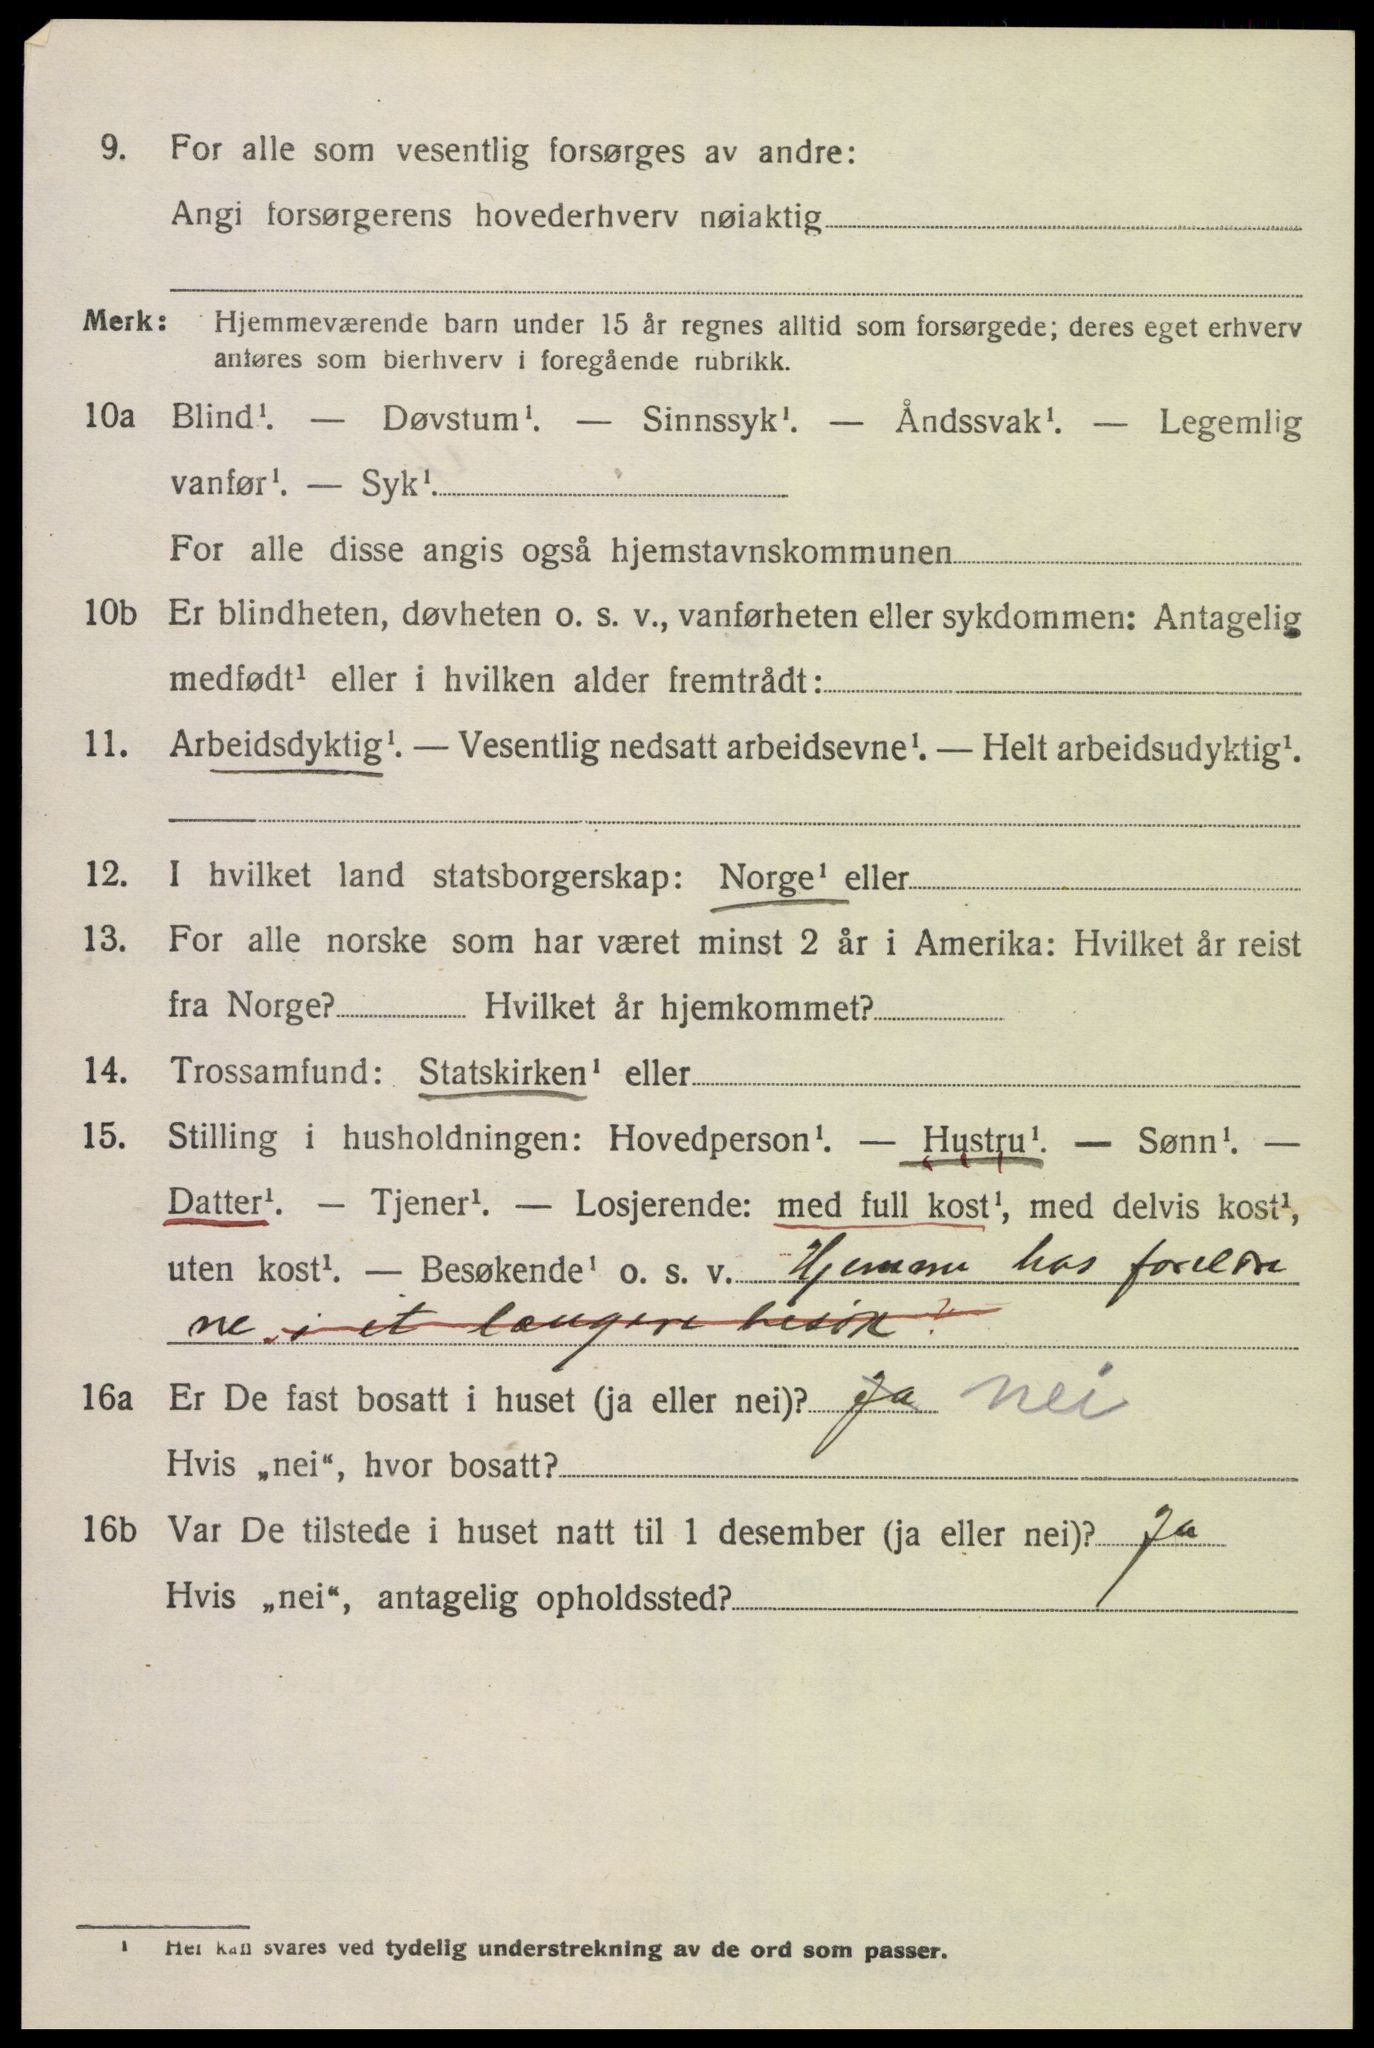 9. For alle som vesentlig forsørges av andre:
Angi forsørgerens hovederhverv nøiaktig
Merk: Hjemmeværende barn under 15 år regnes alltid som forsørgede; deres eget erhverv
anføres som bierhverv i foregående rubrikk.
10a Blind¹. — Døvstum¹. — Sinnssyk¹. — Åndssvak¹. — Legemlig
vanfør¹. — Syk¹.
For alle disse angis også hjemstavnskommunen
10b Er blindheten, døvheten o. s. v., vanførheten eller sykdommen: Antagelig
medfødt¹ eller i hvilken alder fremtrådt:
11. Arbeidsdyktig¹. — Vesentlig nedsatt arbeidsevne¹. — Helt arbeidsudyktig¹.
12. I hvilket land statsborgerskap: Norge¹ eller
13. For alle norske som har været minst 2 år i Amerika: Hvilket år reist
fra Norge? Hvilket år hjemkommet?
14. Trossamfund: Statskirken¹ eller
15. Stilling i husholdningen: Hovedperson¹. — Hustru¹. — Sønn¹. —
Datter¹. — Tjener¹. — Losjerende: med full kost¹, med delvis kost¹,
uten kost¹. — Besøkende¹ o. s. v. Hjemme hos foreldre
ne i et længere besøk?
16a Er De fast bosatt i huset (ja eller nei)? Ja nei
Hvis „nei“, hvor bosatt?
16b Var De tilstede i huset natt til 1 desember (ja eller nei)? Ja
Hvis „nei“, antagelig opholdssted?
¹ Her kan svares ved tydelig understrekning av de ord som passer.